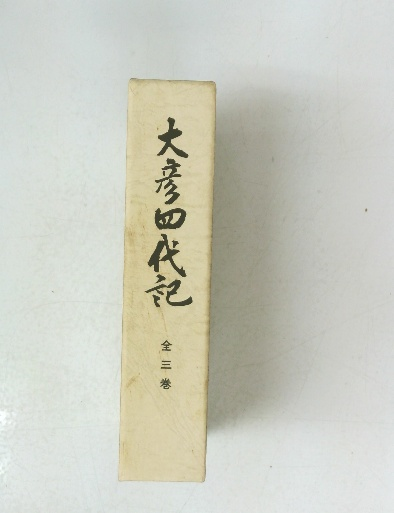 大彦四代記
全三巻